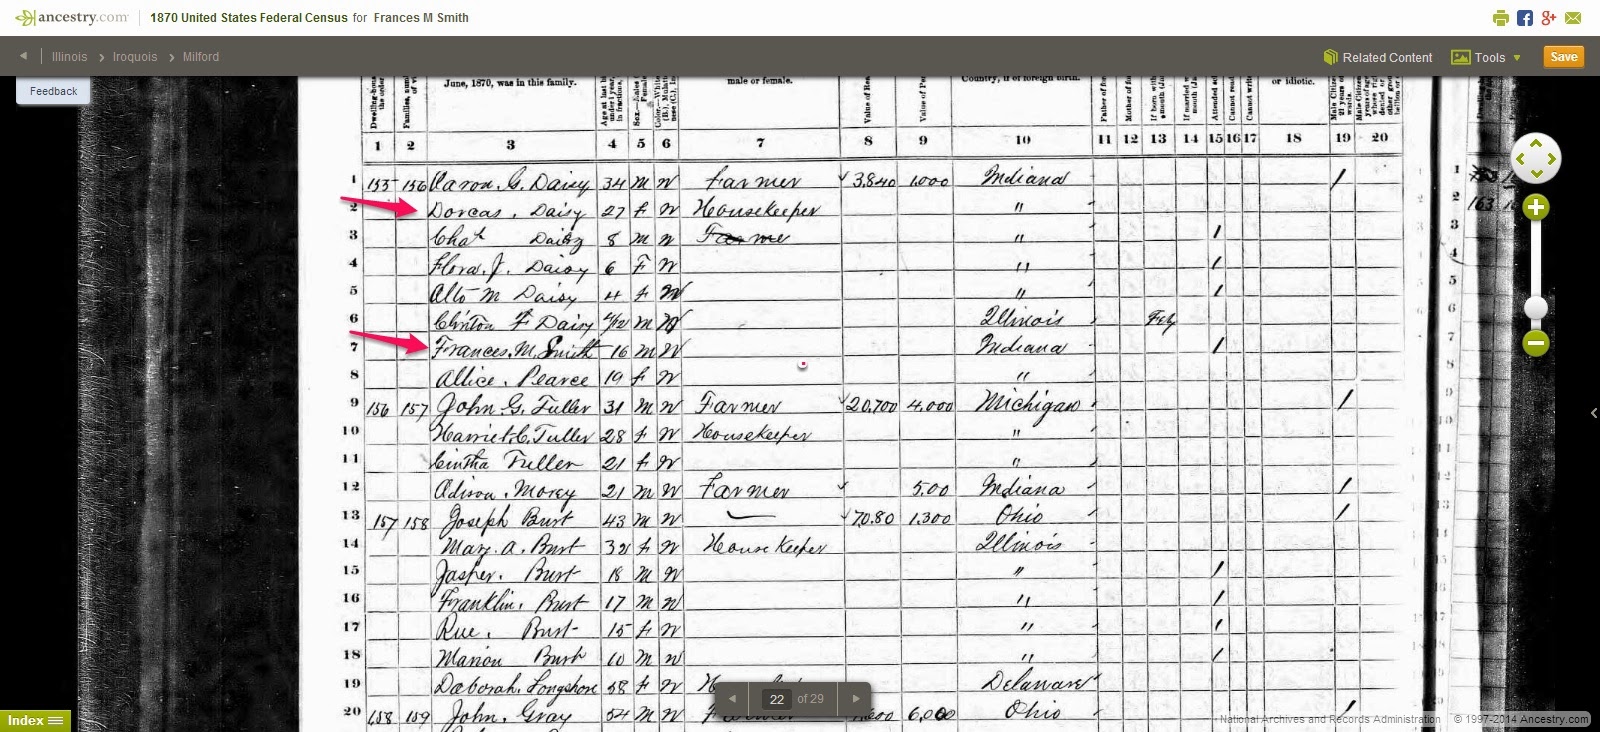 ancestry.com 1870 United States Federal Census for Frances M Smith
Illinois Iroquois Milford Related Content Tools Save
Feedback
June, 1870, was in this family. male or female. Country, if of foreign birth. or idiotic.
1 2 3 4 5 6 7 8 9 10 11 12 13 14 15 16 17 18 19 20
1 155 156 Aaron. G. Daisy 34 M W Farmer 3,840 1,000 Indiana / 1
2 Dorcas. Daisy 27 f W Housekeeper " 2 163
3 Chas Daisy 8 M W Farmer " / 3
4 Flora. J. Daisy 6 F W " / 4
5 Alto M Daisy 4 f W " / 5
6 Clinton F Daisy 4/12 M W Illinois Feby 6
7 Frances. M. Smith 16 M W Indiana / 7
8 Allice. Pearce 19 f W " 8
9 156 157 John. G. Fuller 31 M W Farmer 20,700 4,000 Michigan / 9
10 Harriet. C. Fuller 28 f W Housekeeper " 10
11 Cintha Fuller 21 f W " 11
12 Adison. Morey 21 M W Farmer 5.00 Indiana / 12
13 157 158 Joseph Burt 43 M W 70.80 1.300 Ohio / 13
14 Mary. A. Burt 32 f W House Keeper Illinois 14
15 Jasper. Burt 18 M W " / 15
16 Franklin. Burt 17 M W " / 16
17 Rue. Burt 15 f W " / 17
18 Marion Burt 10 M W " / 18
19 Daborah. Longshore 58 f W Delaware 19
20 158 159 John. Gray 54 M W Farmer 6,000 Ohio / 20
22 of 29
Index National Archives and Records Administration © 1997-2014 Ancestry.com